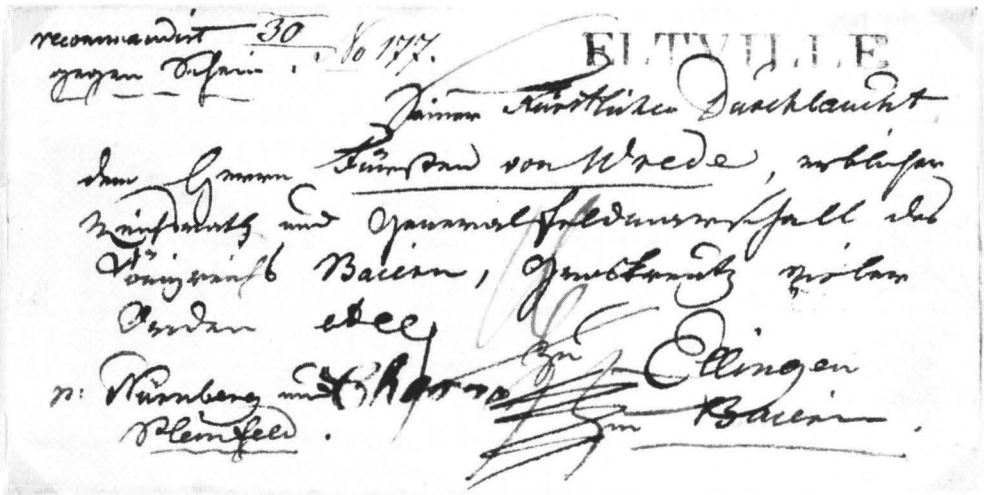 recommandirt 30 No 177.
gegen Schein.
ELTVILLE
Seiner Fürstlichen Durchlaucht
dem Herrn Fürsten von Wrede, erblichen
Reichsrath und Generalfeldmarschall des
Königreichs Baiern, Groskreutz vieler
Orden etc
zu Ellingen
p: Nürnberg und
in Baiern.
Pleinfeld.